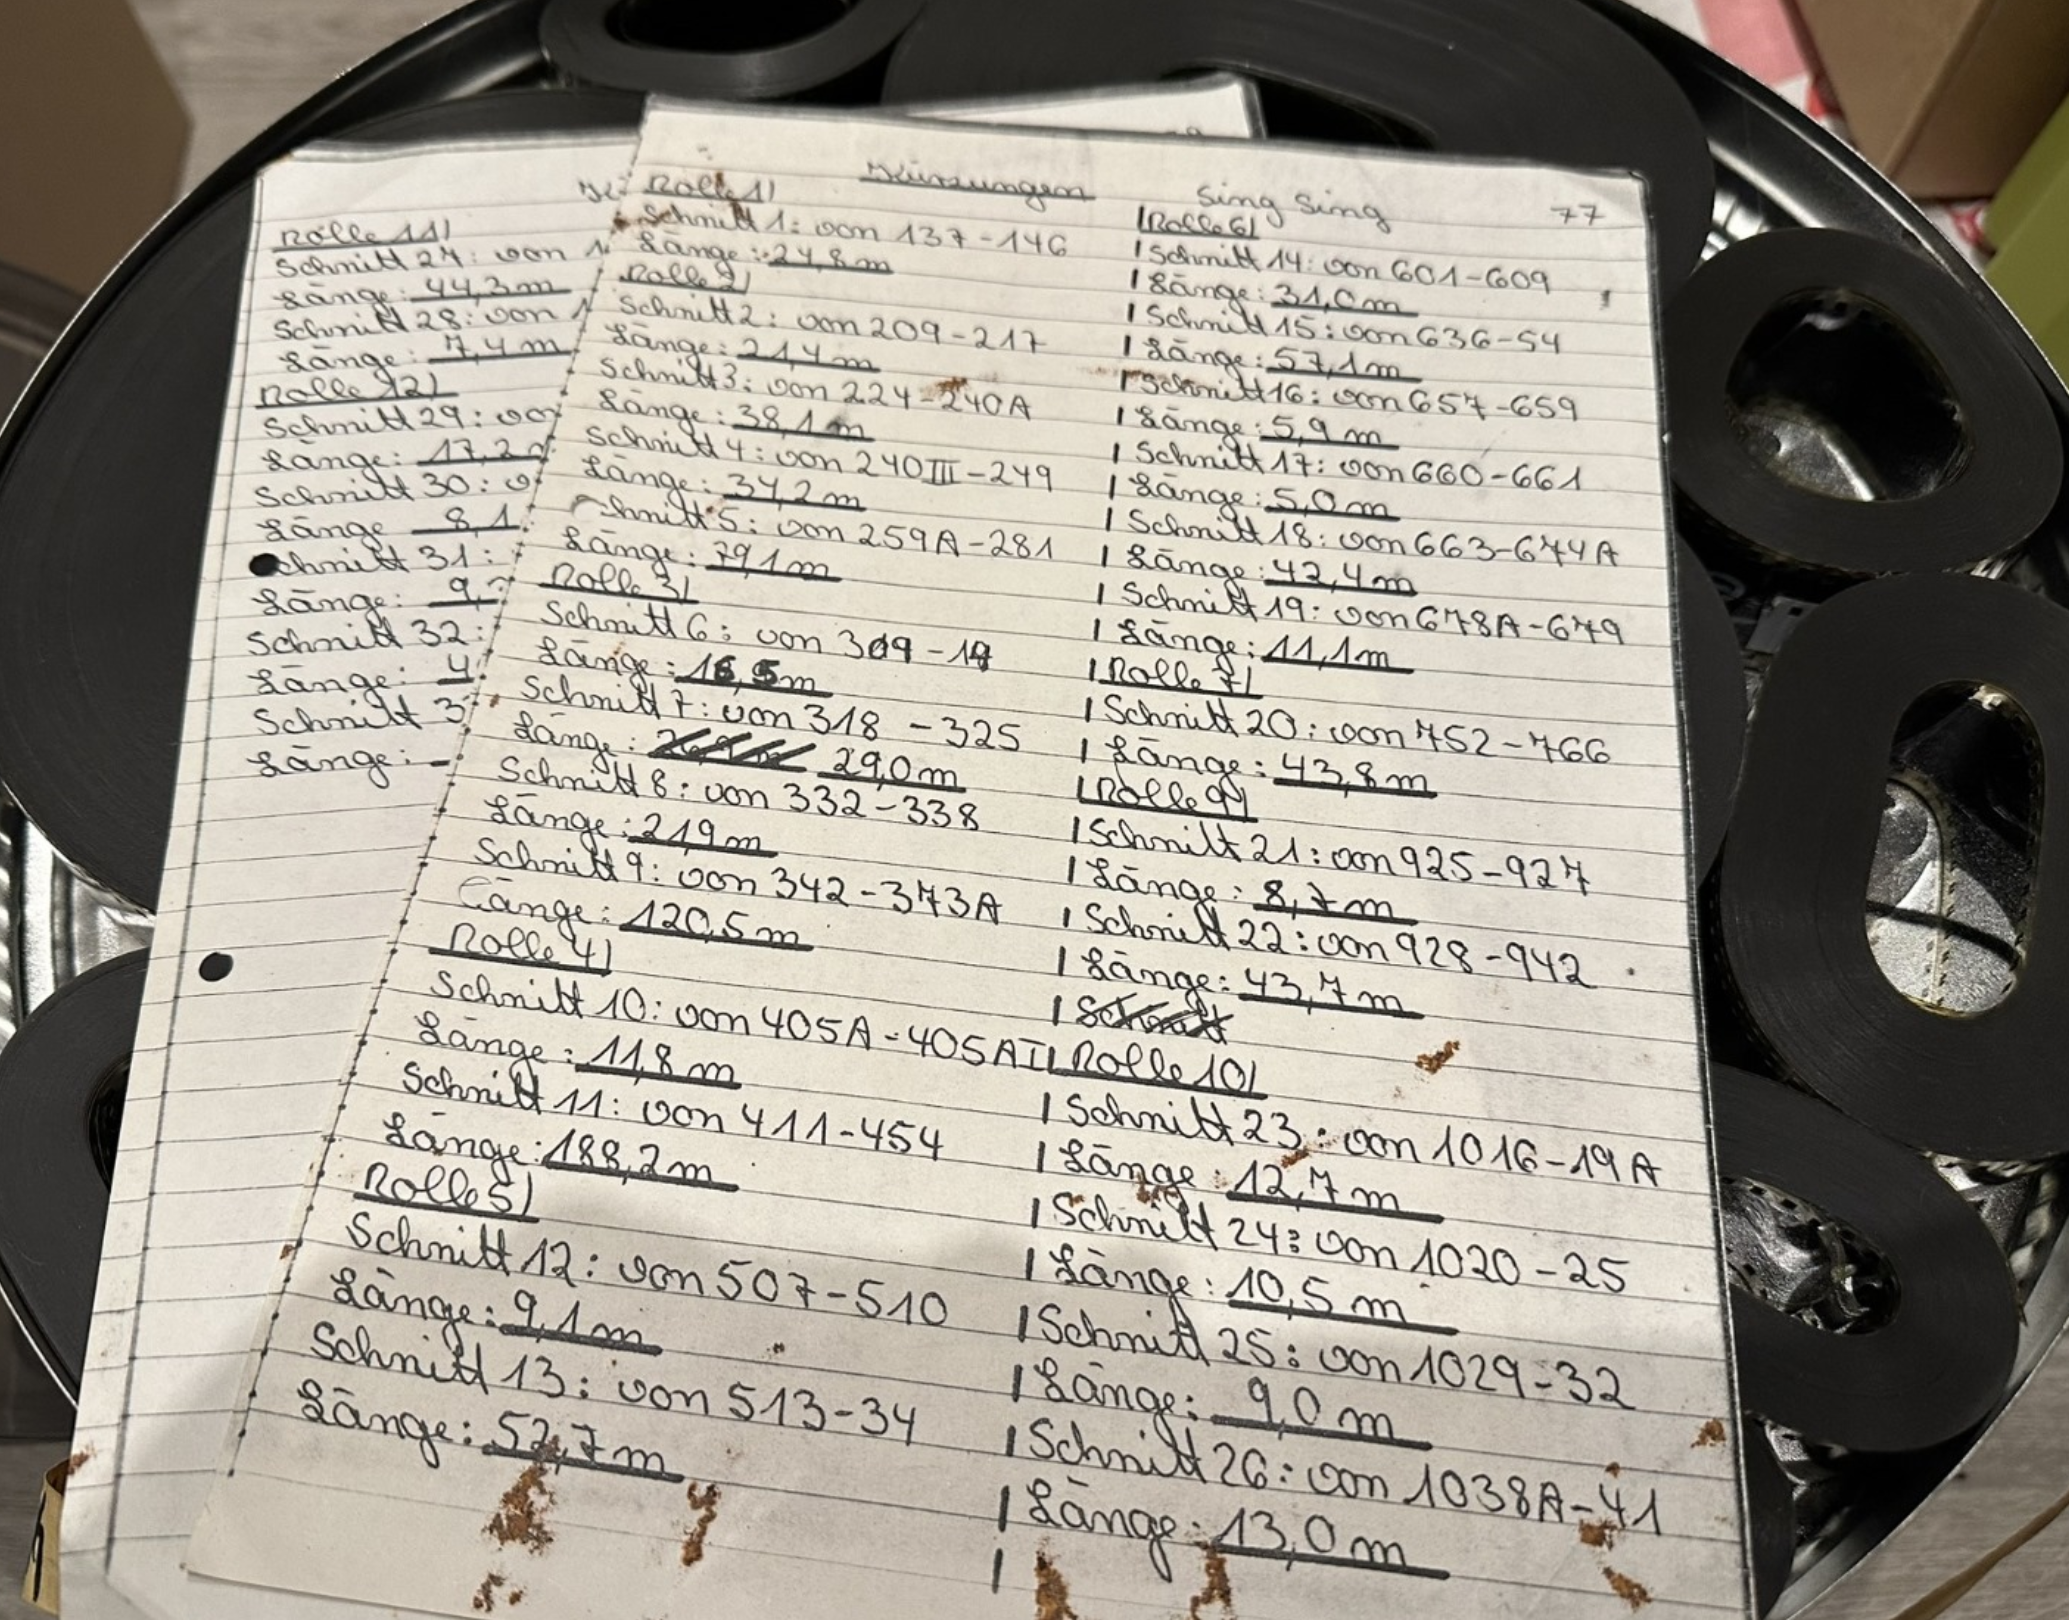 Kürzungen
Sing Sing
77
Rolle 1)
Schnitt 1: von 137-146
Länge: 24,8m
Rolle 2)
Schnitt 2: von 209-217
Länge: 21,4m
Schnitt 3: von 224-240A
Länge: 38,1m
Schnitt 4: von 240III-249
Länge: 34,2m
Schnitt 5: von 259A-281
Länge: 79,1m
Rolle 3)
Schnitt 6: von 309-14
Länge: 16,5m
Schnitt 7: von 318-325
Länge: 29,0m
Schnitt 8: von 332-338
Länge: 21,9m
Schnitt 9: von 342-373A
Länge: 120,5m
Rolle 4)
Schnitt 10: von 405A-405AI
Länge: 11,8m
Schnitt 11: von 411-454
Länge: 188,2m
Rolle 5)
Schnitt 12: von 507-510
Länge: 9,1m
Schnitt 13: von 513-34
Länge: 52,7m
Rolle 6)
Schnitt 14: von 601-609
Länge: 31,0m
Schnitt 15: von 636-54
Länge: 57,1m
Schnitt 16: von 657-659
Länge: 5,9m
Schnitt 17: von 660-661
Länge: 5,0m
Schnitt 18: von 663-674A
Länge: 42,4m
Schnitt 19: von 678A-679
Länge: 11,1m
Rolle 7)
Schnitt 20: von 752-766
Länge: 43,8m
Rolle 9)
Schnitt 21: von 925-927
Länge: 8,7m
Schnitt 22: von 928-942
Länge: 43,7m
Schnitt
Rolle 10)
Schnitt 23: von 1016-19A
Länge: 12,7m
Schnitt 24: von 1020-25
Länge: 10,5m
Schnitt 25: von 1029-32
Länge: 9,0m
Schnitt 26: von 1038A-41
Länge: 13,0m
Rolle 11)
Schnitt 27: von 1
Länge: 44,3m
Schnitt 28: von 1
Länge: 7,4m
Rolle 12)
Schnitt 29: vo
Länge: 17,2
Schnitt 30: v
Länge 8,1
chnitt 31:
Länge: 9,
Schnitt 32:
Länge: 4
Schnitt 3
Länge: